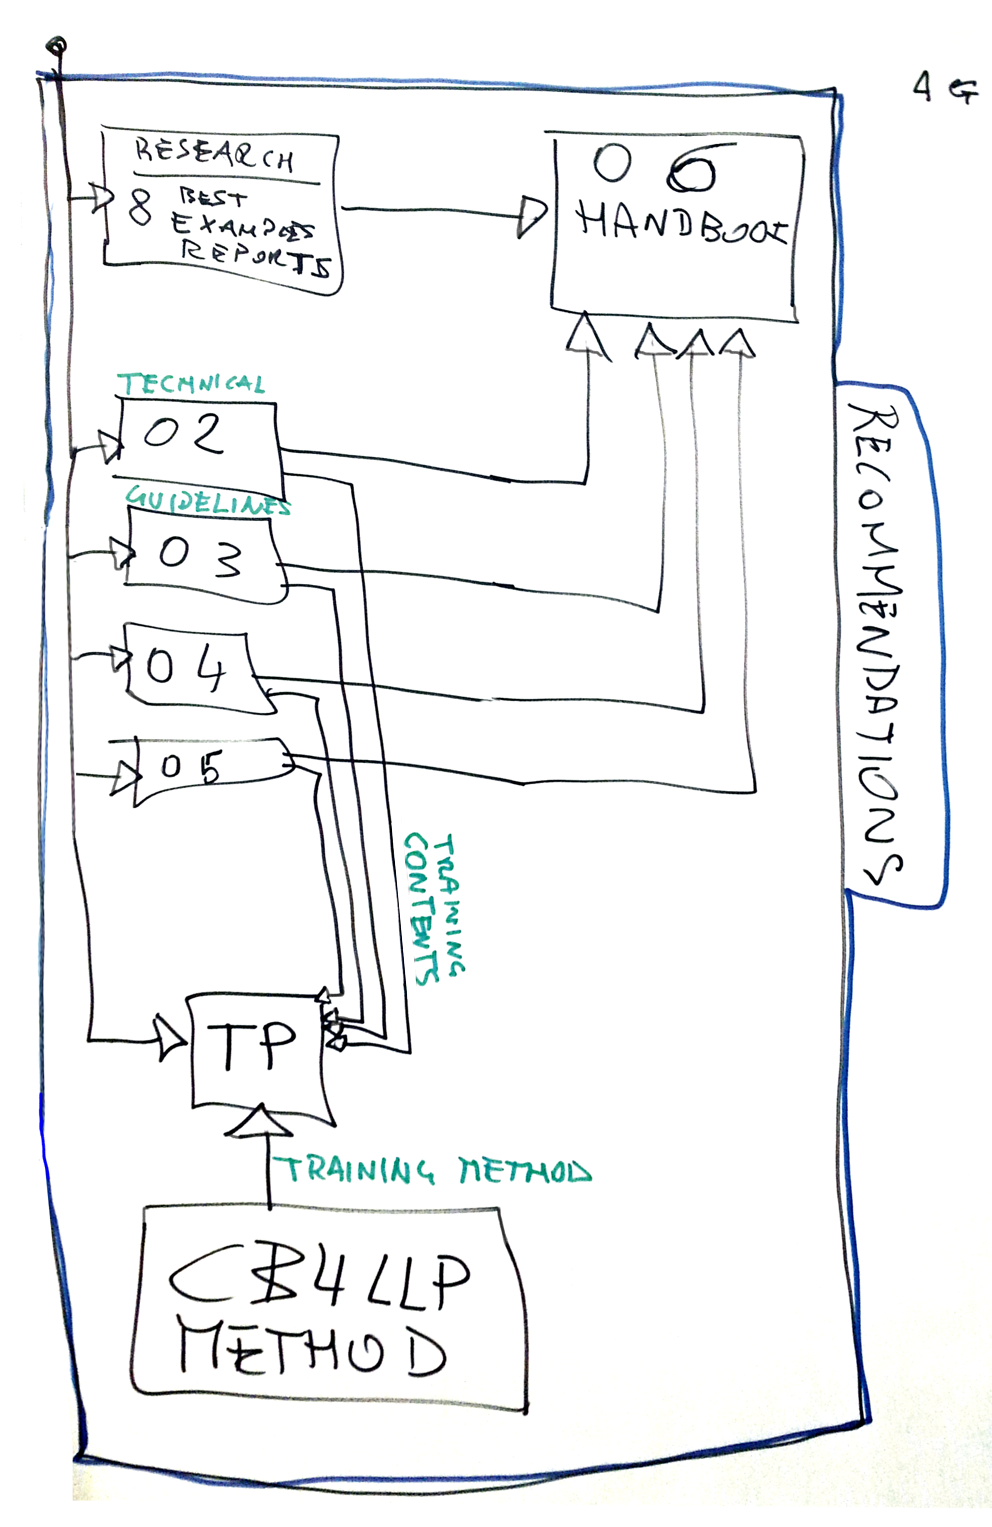 4 G
RESEARCH
8 BEST
EXAMPLES
REPORTS
06
HANDBOOK
TECHNICAL
02
GUIDELINES
03
04
05
RECOMMENDATIONS
TRAINING
CONTENTS
TP
TRAINING METHOD
CB4LLP
METHOD